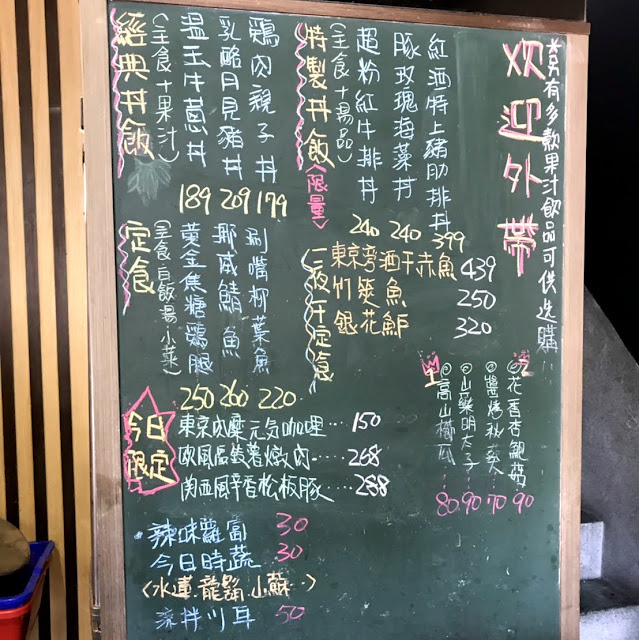 另有多款果汁飲品可供選購
欢迎外帶
特製丼飯〈限量〉
(主食＋湯品)
紅酒特上豬肋排丼
399
豚玫瑰海菜丼
240
超粉紅牛排丼
240
經典丼飯
(主食＋果汁)
鶏肉親子丼
179
乳酪月見豬丼
209
溫玉牛蔥丼
189
一夜干定食
東京旁酒干赤魚 439
竹筴魚 250
銀花鲈 320
定食
(主食．白飯．湯．小菜)
涮嘴柳葉魚
220
挪威鯖魚
260
黃金焦糖鶏腿
250
◎花香杏鮑菇…90
◎醬烤秋葵…70
◎山藥明太子…90
◎高山櫛瓜…80
今日限定
東京肉糜元気咖哩…150
欧風馬鈴薯燉肉…268
関西風辛香松板豚…288
辣味蘿蔔 30
今日時蔬 30
〈水蓮．龍鬚．小蘇．〉
涼拌川耳 50